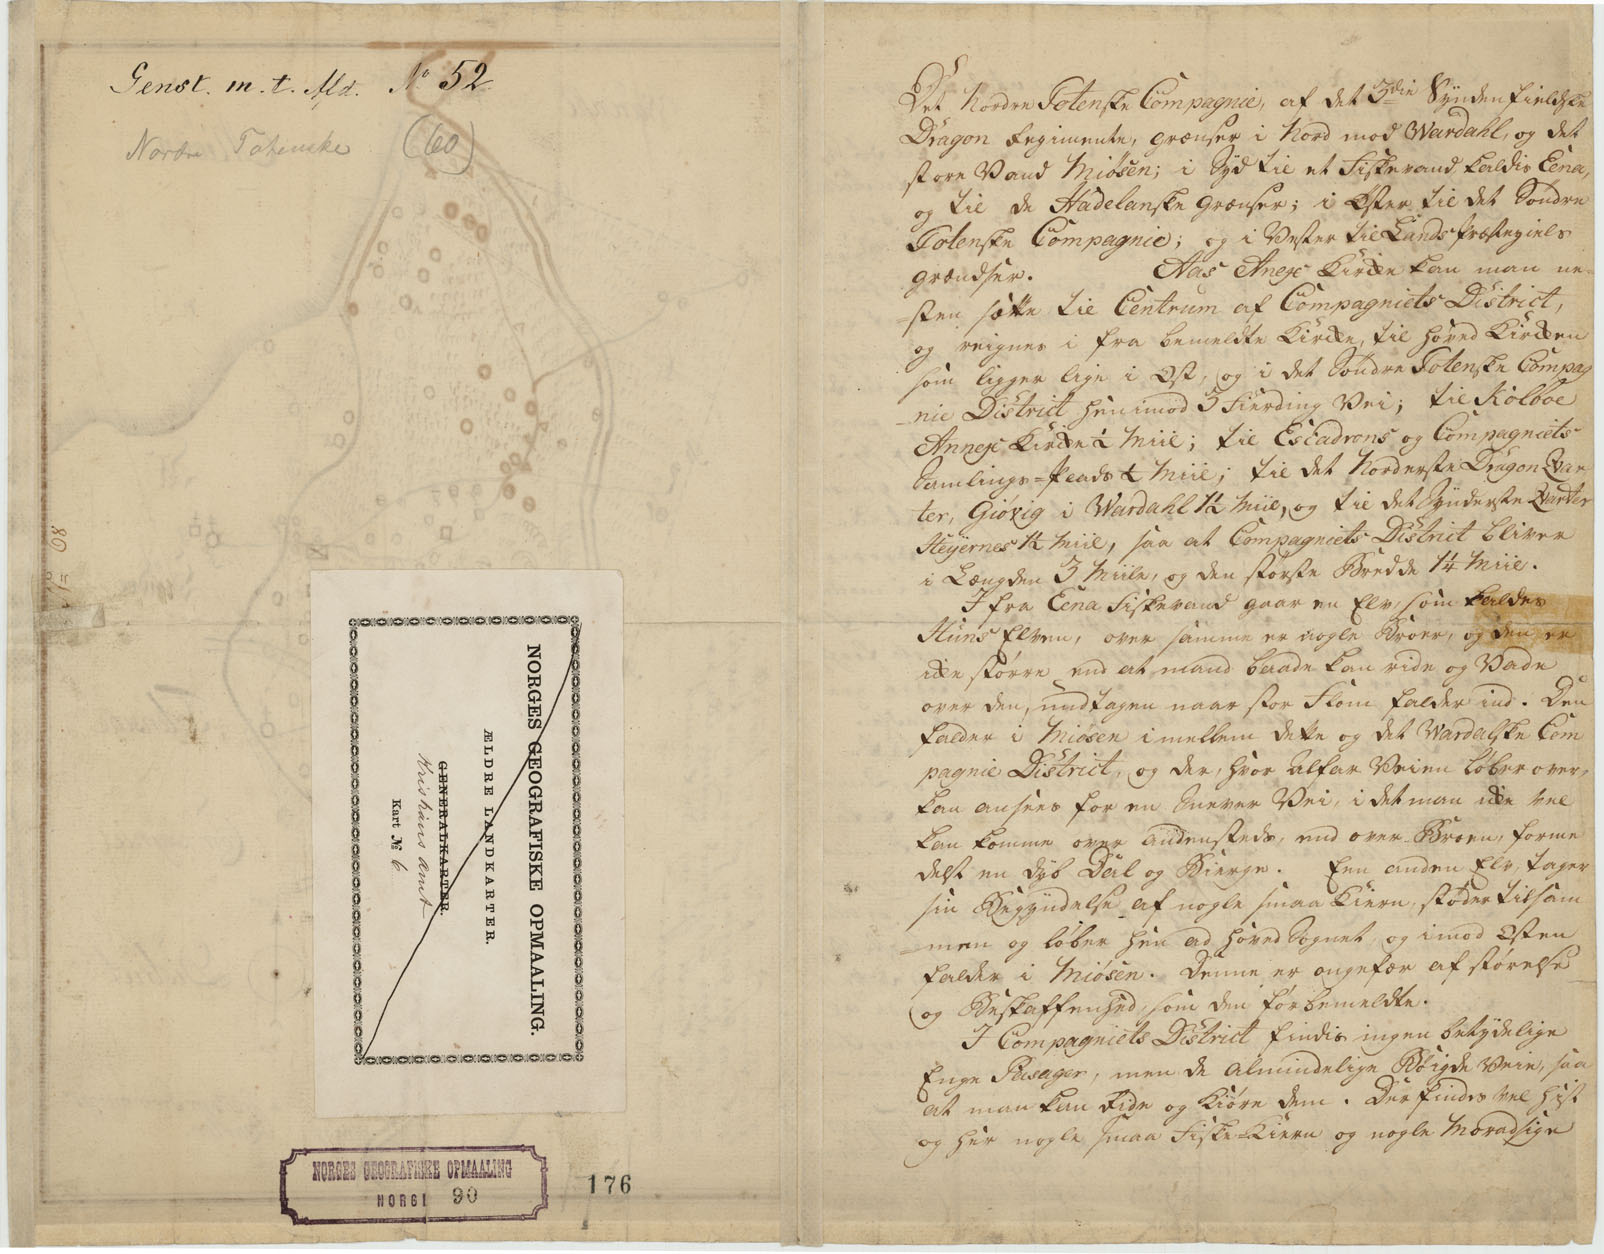 Genst. m. t. Md. No 52.
Nordre Totenske (60)
NORGES GEOGRAFISKE OPMAALING.
ÆLDRE LANDKARTER.
GENERALKARTER.
Kristians amt
Kart No 6
NORGES GEOGRAFISKE OPMAALING
NORGE 90
176
Det Nordre Totenske Compagnie, af det 3die Syndenfieldske
Dragon Regimente, grænser i Nord mod Wardahl, og det
store Vand Miösen; i Syd til et Fiskevand kaldis Eena,
og til de Hadelanske Grænser; i Öster til det Söndre
Totenske Compagnie; og i Vester til Lands Præstegiels
grændser. Aas Anexe Kircke kan man ne-
sten sætte til Centrum af Compagniets District,
og reignes i fra bemeldte Kircke, til Hoved Kircken
som ligger lige i Öst, og i det Söndre Totenske Compag
nie District henimod 3 Fierding Vei; til Kolboe
Annexe Kircke ½ Miil; til Escadrons og Compagniets
Samlings-Plads ½ Miil; til det Norderste Dragon Qvar
ter, Giövig i Wardahl 1½ Miil, og til det Synderste Qvarter
Heyernes 1½ Miil, saa at Compagniets District bliver
i Længden 3 Miile, og den störste Bredde 1¼ Miil.
I fra Eena Fiskevand gaar en Elv, som kaldes
Huns Elven, over samme er nogle Broer, og den er
icke större end at mand baade kan ride og Vade
over den, undtagen naar stor Flom falder ind. Den
falder i Miösen imellem dette og det Wardalske Com
pagnie District, og der, hvor Alfar Veien löber over,
kan ansees for en Snever Vei, i det man icke vel
kan komme over andensteds, end over Broen, forme
delst en dyb Dal og Bierge. Een anden Elv, tager
sin Begyndelse af nogle smaa Kiern, stöder tilsam
men og löber hen ad Hoved Sognet, og imod Östen
falder i Miösen. Denne er ongefær af störelse
og Beskaffenhed, som den forbemeldte.
I Compagniets District findis ingen betydelige
Enge Passager, men de Almindelige Böigde Veie, saa
at man kan Ride og Kiöre dem. Der findes vel hist
og her nogle smaa Fiske-Kiern og nogle Moradsige